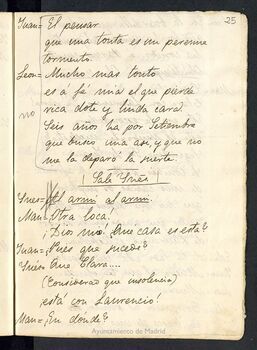 25
Juan = El pensar
que una tonta es un perenne
tormento.
Leon = Mucho mas tonto
es a fé mia el que pierde
rica dote y linda cara!
no
Seis años ha por Setiembre
que busco una asi, y que no
me la deparó la suerte.
Sale Ynés
Ynes = Al arma al arma.
Man = Otra loca!
¡Dios mio! Que casa es esta?
Juan = Pues que sucede?
Ynés = Que Clara....
(Considerad que insolencia)
¡está con Laurencio!
Man = ¿En donde?
Ayuntamiento de Madrid